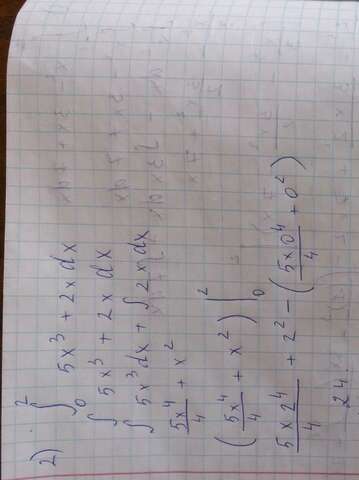 2) ∫₀² 5x³ + 2x dx
∫ 5x³ + 2x dx
∫ 5x³ dx + ∫ 2x dx
5x⁴/4 + x²
(5x⁴/4 + x²) |₀²
5x2⁴/4 + 2² - (5x0⁴/4 + 0²)
24.